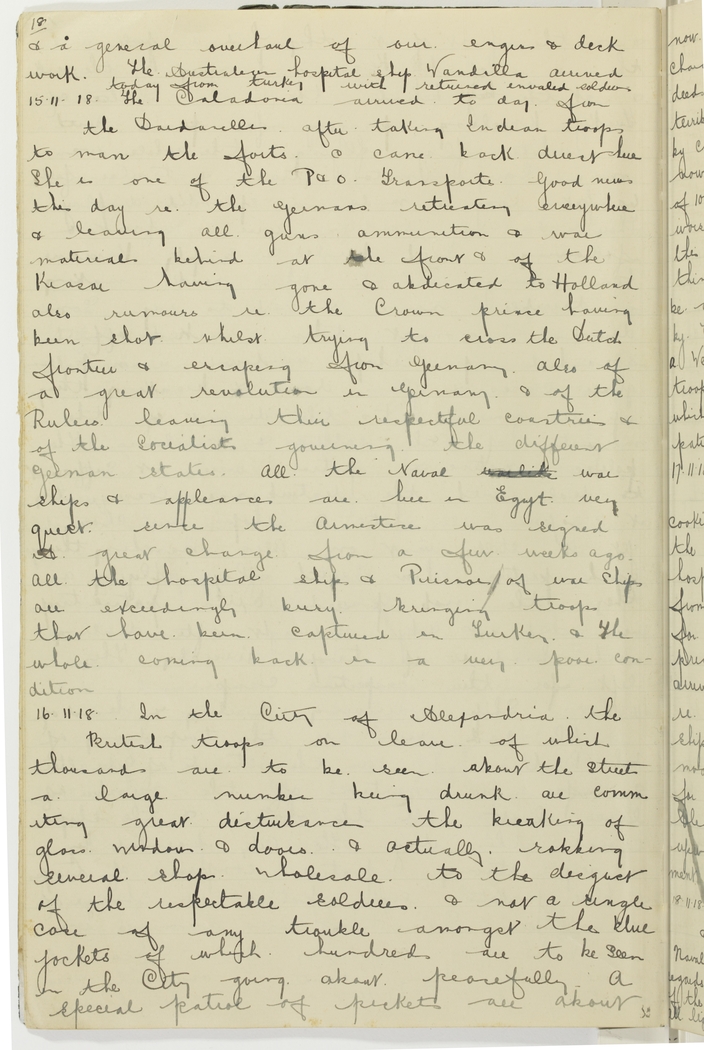 18
& a general overhaul of our engins & deck
work. The Australian hospital ship Wandilla arrived
today from turkey with returned invaled soldiers
15-11-18. The Caladonia arrived to day from
the Dardarelles after taking Indian troops
to man the forts. & came back direct here
She is one of the P&O. Transports. Good news
this day re. the Germans retreating everywhere
& leaving all guns ammunition & war
materials behind at the front & of the
Kiasar having gone & abdicated to Holland
also rumours re. the Crown prince having
been shot whilst trying to cross the Dutch
frontier & escaping from Germany. also of
a great revolution in Germany. & of the
Rulers leaving their respectful countries &
of the Socialists governing the different
German states. All the Naval warlike war
ships & appliances are here in Egypt very
quiet. since the Armistice was signed
a great change from a few weeks ago.
All the hospital ships & Prisnor of war Ships
are exceedingly busy. bringing troops
that have been captured in Turkey. & The
whole coming back in a very poor con-
dition
16-11-18. In the City of Alexandria the
British troops on leave of which
thousands are to be seen about the streets
a large number being drunk are comm
iting great disturbances the breaking of
glass windows & doors. & actually robbing
several shops wholesale. to the disgust
of the respectable soldiers. & not a single
case of any trouble amongst the blue
jackets of which hundreds are to be seen
in the City going about peacefully. A
special patrol of pickets are about
now
of
the
17.11.1
the
from
re.
18.11.18
Naval